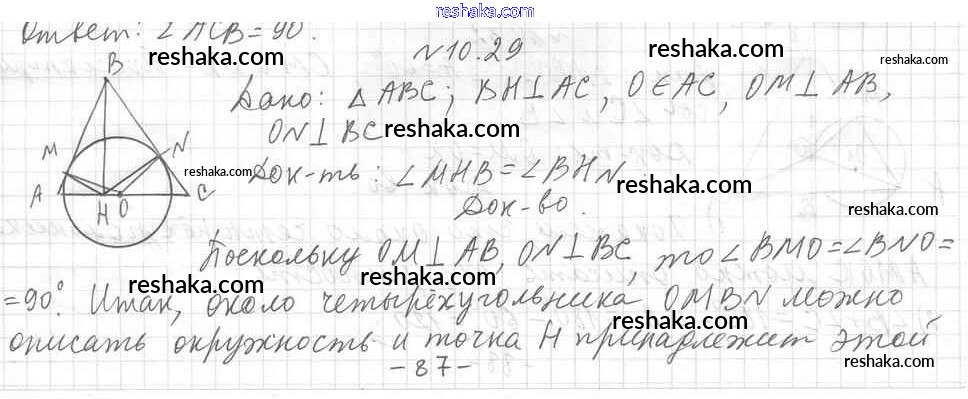 www.reshaka.com
Ответ: ∠ACB = 90.
N 10.29
reshaka.com
reshaka.com
B
Дано: △ABC; BH⊥AC, O∈AC, OM⊥AB,
ON⊥BC reshaka.com
reshaka.com
M N
reshaka.com
Док-ть: ∠MHB = ∠BHN
reshaka.com
A H O C
reshaka.com
Док-во.
reshaka.com
Поскольку OM⊥AB, ON⊥BC то ∠BMO = ∠BNO =
reshaka.com
reshaka.com
reshaka.com
= 90°. Итак, около четырёхугольника OMBN можно
reshaka.com
описать окружность и точка H принадлежит этой
reshaka.com
reshaka.com
-87-
www.reshaka.com